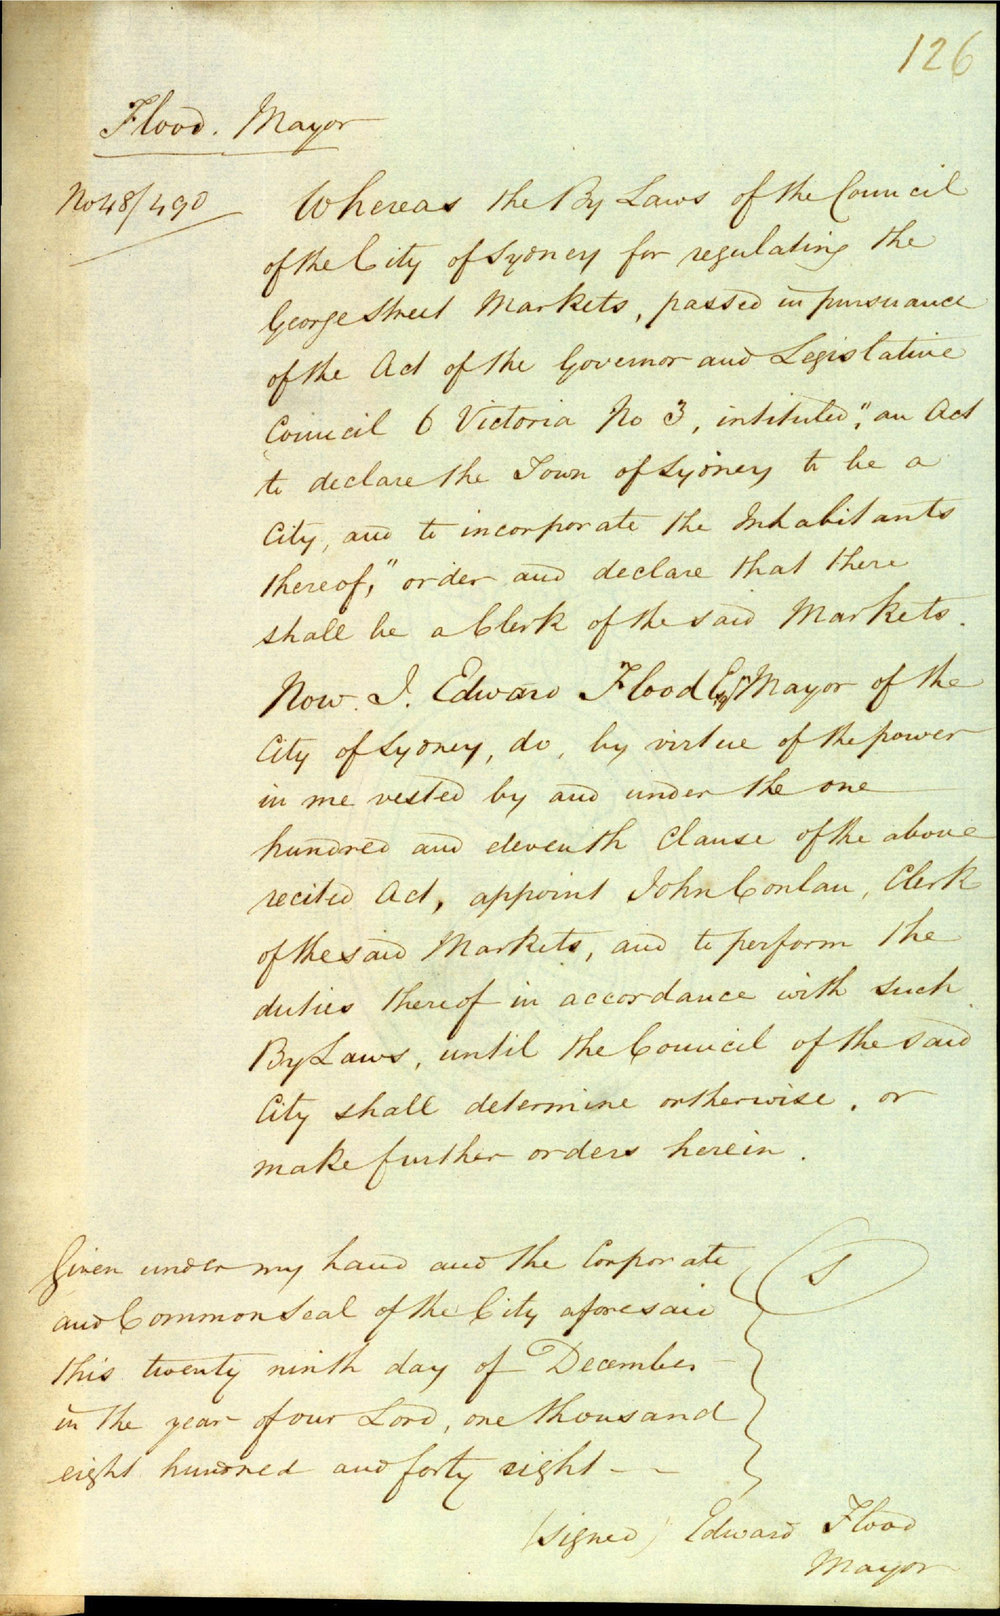 126
Flood. Mayor
No 48/490
Whereas the By Laws of the Council
of the City of Sydney for regulating the
George Street Markets, passed in pursuance
of the Act of the Governor and Legislative
Council 6 Victoria No 3, intituled, "an Act
to declare the Town of Sydney to be a
City, and to incorporate the Inhabitants
thereof," order and declare that there
shall be a Clerk of the said Markets.
Now. I. Edward Flood Esqr Mayor of the
City of Sydney, do, by virtue of the power
in me vested by and under the one
hundred and eleventh Clause of the above
recited Act, appoint John Conlan, Clerk
of the said Markets, and to perform the
duties thereof in accordance with such
By Laws, until the Council of the said
City shall determine ortherwise, or
make further orders herein.
Given under my hand and the Corporate
and Common Seal of the City aforesaid
this twenty ninth day of December
in the year of our Lord, one thousand
eight hundred and forty eight - -
S
(signed) Edward Flood
Mayor